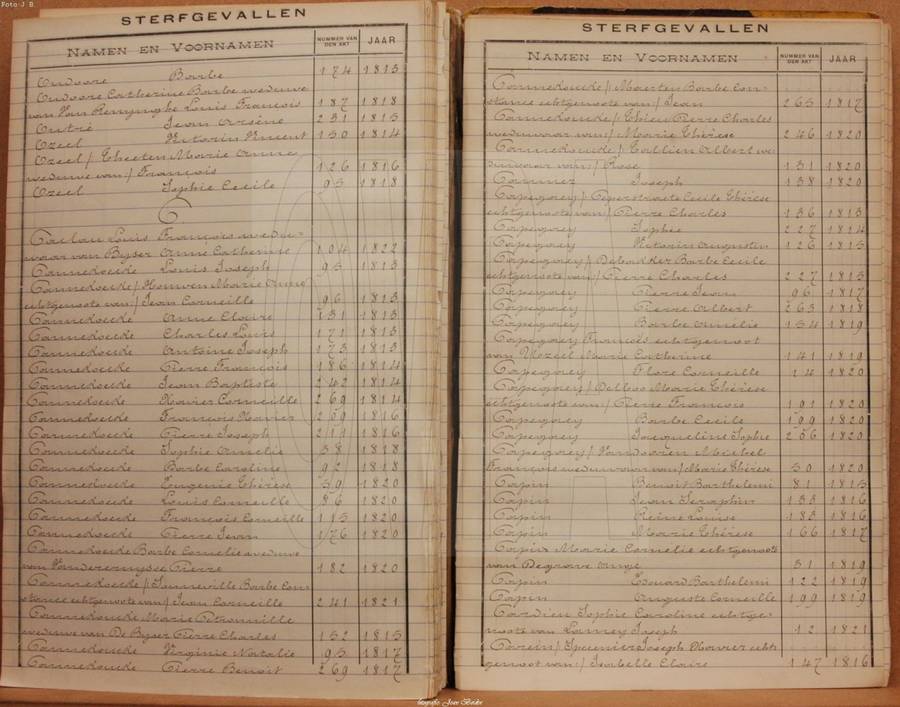 Foto J B.
STERFGEVALLEN
NAMEN EN VOORNAMEN NUMMER VAN DEN AKT JAAR
Oudoore Barbe 174 1815
Oudoore Catherine Barbe weduwe
van Van Remynghe Louis François 187 1818
Outrié Jean Arsène 231 1815
Ozeel Victorin Vincent 150 1814
Ozeel / Theeten Marie Anne
weduwe van / François 126 1816
Ozeel Sophie Cecile 95 1818
C.
Louis François wedu-
waar van Byser Anne Catherine 104 1822
Cannekoecke Louis Joseph 95 1813
Cannekoecke / Houwen Marie Anne
echtgenoote van / Jean Corneille 96 1813
Cannekoecke Anne Claire 131 1813
Cannekoecke Charles Louis 171 1813
Cannekoecke Antoine Joseph 173 1813
Cannekoecke Pierre François 186 1814
Cannekoecke Jean Baptiste 242 1814
Cannekoecke Xavier Corneille 269 1814
Cannekoecke François Xavier 209 1816
Cannekoecke Pierre Joseph 211 1816
Cannekoecke Sophie Amelie 58 1818
Cannekoecke Barbe Caroline 92 1818
Cannekoecke Eugenie Thérèse 59 1820
Cannekoecke Louis Corneille 86 1820
Cannekoecke François Corneille 115 1820
Cannekoecke Pierre Jean 176 1820
Cannekoecke Barbe Cornelie weduwe
van Vanderemysse Pierre 182 1820
Cannekoecke / Sanneville Barbe Con-
stance echtgenoote van / Jean Corneille 241 1821
Cannekoucke Marie Petronille
weduwe van De Byser Pierre Charles 152 1815
Cannekoucke Virginie Natalie 95 1817
Cannekoucke Pierre Benoit 269 1817
STERFGEVALLEN
NAMEN EN VOORNAMEN NUMMER VAN DEN AKT JAAR
Cannekoucke / Maerten Barbe Con-
stance echtgenoote van / Jean 265 1817
Cannekoucke / Pierre Charles
weduwaar van / Marie Thérèse 246 1820
Cannekoucke / Callien Albert we-
duwaar van / Rose 131 1820
Joseph 138 1820
Capegoey / Peperstraete Cecile Thérèse
echtgenoote van / Pierre Charles 136 1813
Capegoey Sophie 227 1814
Capegoey Victorin Augustin 126 1815
Capegoey / Debakker Barbe Cecile
echtgenoote van / Pierre Charles 227 1815
Capegoey Pierre Jean 96 1817
Capegoey Pierre Albert 263 1818
Capegoey Barbe Amélie 154 1819
Capegoey François echtgenoot
van Mozeel Marie Catherine 141 1819
Capegoey Flore Corneille 14 1820
Capegoey / Delboo Marie Thérèse
echtgenoote van / Pierre François 191 1820
Capegoey Barbe Cecile 199 1820
Capegoey Jacqueline Sophie 206 1820
Capegoey / Vandoorien Michel
François weduwaar van / Marie Thérèse 30 1820
Capin Benoit Barthelemi 81 1815
Capin Jean Seraphin 133 1816
Capin Reine Louise 183 1816
Capin Marie Thérèse 166 1817
Capin Marie Cornelie echtgenoote
van Degrave Ange 31 1819
Capin Edouard Barthelemi 122 1819
Capin Auguste Corneille 199 1819
Cardien Sophie Caroline echtge-
noote van Lamey Joseph 12 1821
Carein / Joseph Xavier echt-
genoot van / Isabelle Claire 147 1816